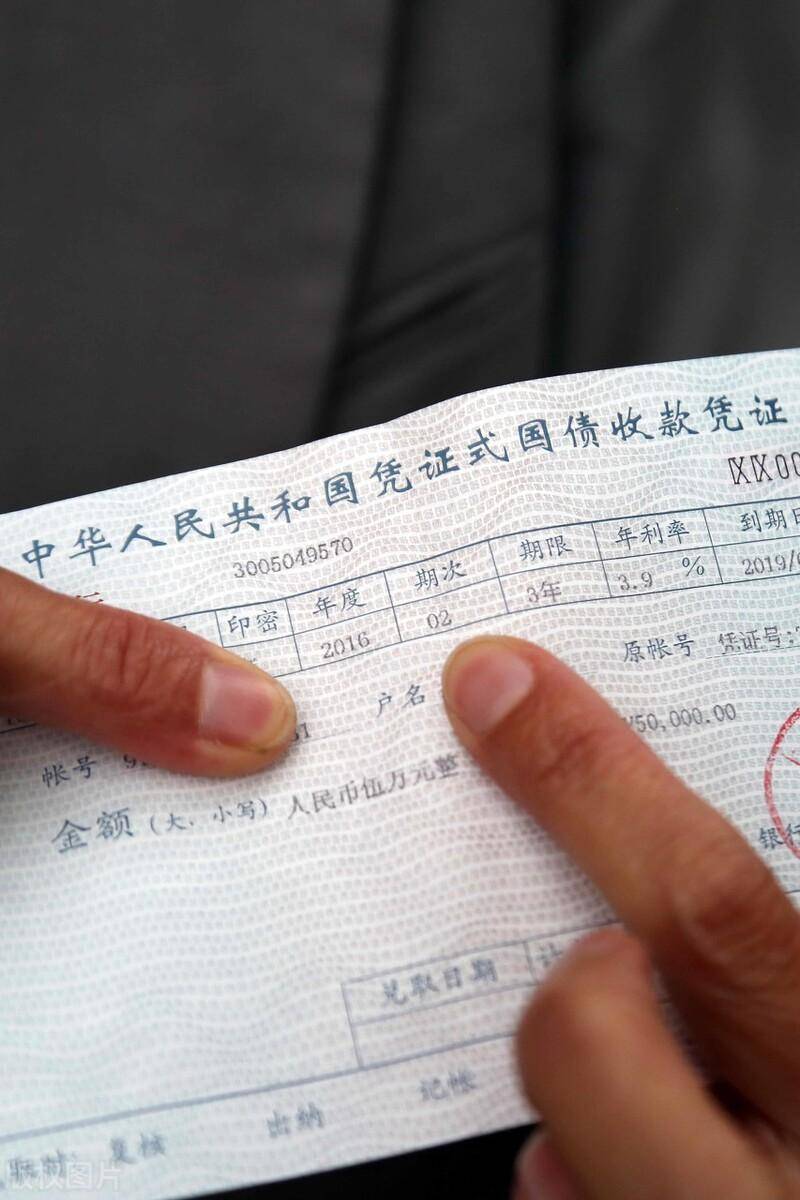 中华人民共和国凭证式国债收款凭证
3005049570
印密 年度 期次 期限 年利率 到期日
2016 02 3年 3.9 % 2019/
户名 原帐号 凭证号:
帐号
¥50,000.00
金额(大、小写) 人民币伍万元整
银行
兑取日期
复核 出纳 记帐
版权图片